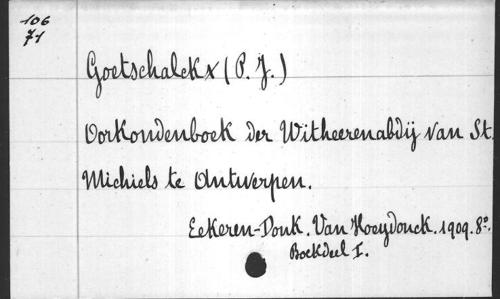 106
71
Goetschalckx (P. J.)
Oorkondenboek der Witheerenabdij van St.
Michiels te Antwerpen.
Eekeren-Donk. Van Hoeydonck. 1909. 8°.
Boekdeel I.